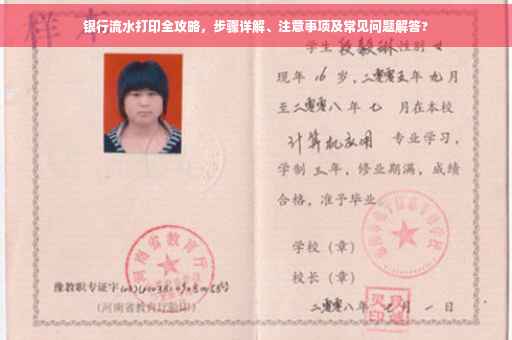 银行流水打印全攻略，步骤详解、注意事项及常见问题解答?
样本
学生段毅琳性别女
现年16岁，二零零五年九月
至二零零八年七月在本校
计算机应用专业学习，
学制三年，修业期满，成绩
合格，准予毕业。
学校（章）
校长（章）
二零零八年七月一日
河南省教育厅
豫教职专证字
(河南省教育厅验印)